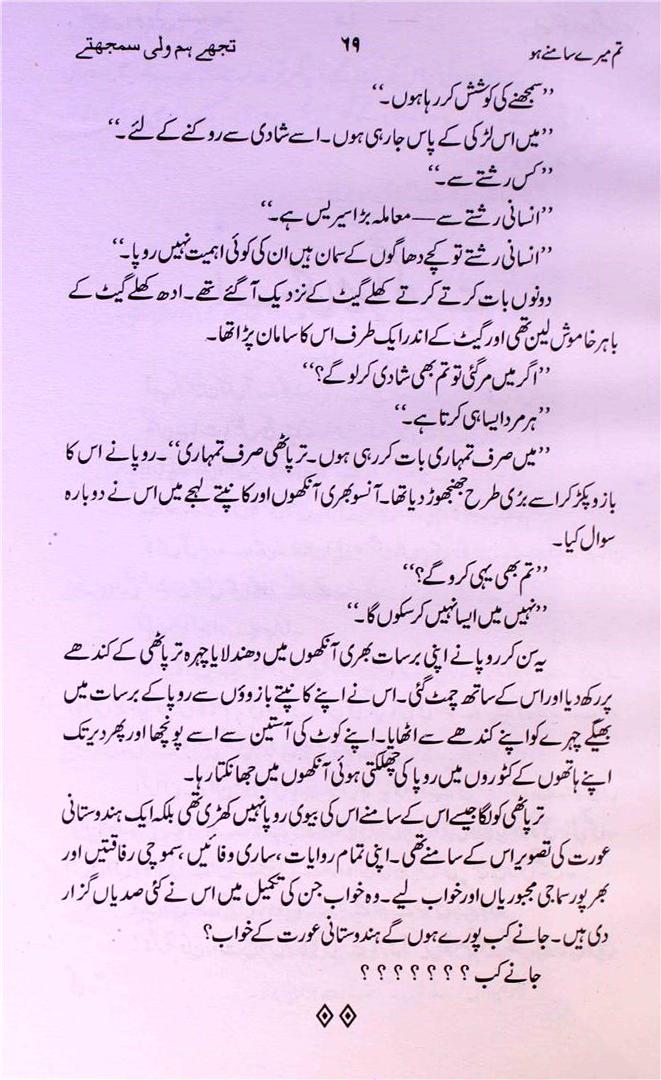 تم میرے سامنے ہو ۶۹ تجھے ہم ولی سمجھتے
’’سمجھنے کی کوشش کر رہا ہوں۔‘‘
’’میں اس لڑکی کے پاس جا رہی ہوں۔ اسے شادی سے روکنے کے لئے۔‘‘
’’کس رشتے سے۔‘‘
’’انسانی رشتے سے — معاملہ بڑا سیریس ہے۔‘‘
’’انسانی رشتے تو کچے دھاگوں کے سمان ہیں ان کی کوئی اہمیت نہیں روپا۔‘‘
دونوں بات کرتے کرتے کھلے گیٹ کے نزدیک آ گئے تھے۔ ادھ کھلے گیٹ کے
باہر خاموش لین تھی اور گیٹ کے اندر ایک طرف اس کا سامان پڑا تھا۔
’’اگر میں مر گئی تو تم بھی شادی کر لو گے؟‘‘
’’ہر مرد ایسا ہی کرتا ہے۔‘‘
’’میں صرف تمہاری بات کر رہی ہوں۔ ترپاٹھی صرف تمہاری‘‘۔ روپا نے اس کا
بازو پکڑ کر اسے بری طرح جھنجھوڑ دیا تھا۔ آنسو بھری آنکھوں اور کانپتے لہجے میں اس نے دوبارہ
سوال کیا۔
’’تم بھی یہی کرو گے؟‘‘
’’نہیں میں ایسا نہیں کر سکوں گا۔‘‘
یہ سن کر روپا نے اپنی برسات بھری آنکھوں میں دھندلایا چہرہ ترپاٹھی کے کندھے
پر رکھ دیا اور اس کے ساتھ چمٹ گئی۔ اس نے اپنے کانپتے بازوؤں سے روپا کے برسات میں
بھیگے چہرے کو اپنے کندھے سے اٹھایا۔ اپنے کوٹ کی آستین سے اسے پونچھا اور پھر دیر تک
اپنے ہاتھوں کے کٹوروں میں روپا کی چھلکتی ہوئی آنکھوں میں جھانکتا رہا۔
ترپاٹھی کو لگا جیسے اس کے سامنے اس کی بیوی روپا نہیں کھڑی تھی بلکہ ایک ہندوستانی
عورت کی تصویر اس کے سامنے تھی۔ اپنی تمام روایات، ساری وفائیں، سموچی رفاقتیں اور
بھرپور سماجی مجبوریاں اور خواب لیے۔ وہ خواب جن کی تکمیل میں اس نے کئی صدیاں گزار
دی ہیں۔ جانے کب پورے ہوں گے ہندوستانی عورت کے خواب؟
جانے کب ؟ ؟ ؟ ؟ ؟ ؟ ؟